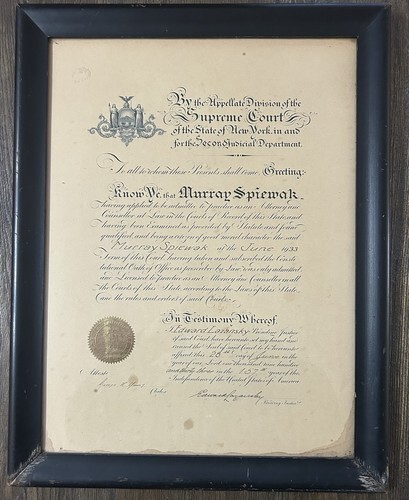 By the Appellate Division of the
Supreme Court
of the State of New York, in and
for the Second Judicial Department.
To all to whom these Presents shall come, Greeting:
Know Ye, that Murray Spiewak
having applied to be admitted to practice as an Attorney and
Counsellor at Law in the Courts of Record of this State and
having been Examined as provided by Statute and found
qualified and being a person of good moral character the said
Murray Spiewak at the June 1933
Term of this Court, having taken and subscribed the Consti-
tutional Oath of Office as prescribed by Law, was only admitted
and Licensed to practice as an Attorney and Counsellor in all
the Courts of this State, according to the Laws of this State
and the rules and orders of said Courts.
In Testimony Whereof,
I, Edward Lazansky Presiding Justice
of said Court have hereunto set my hand and
caused the Seal of said Court to be hereunto
affixed, this 28th day of June in the
year of our Lord one thousand nine hundred
and thirty three in the 157th year of the
Independence of the United States of America
Attest
Clerk
Edward Lazansky
Presiding Justice